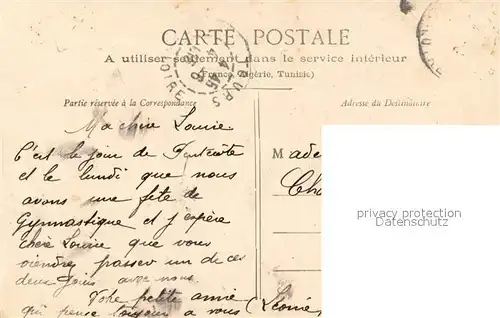 CARTE POSTALE
A utiliser seulement dans le service intérieur
(France, Algérie, Tunisie)
Partie réservée à la Correspondance
Adresse du Destinataire
Ma chère Louise
C'est le jour de Pentecôte
et le lundi que nous
avons une fête de
Gymnastique et j'espère
chère Louise que vous
viendrez passer un de ces
deux jours avec nous.
Votre petite amie
qui pense toujours a vous (Léonie)
Made
Cha
privacy protection
watermark